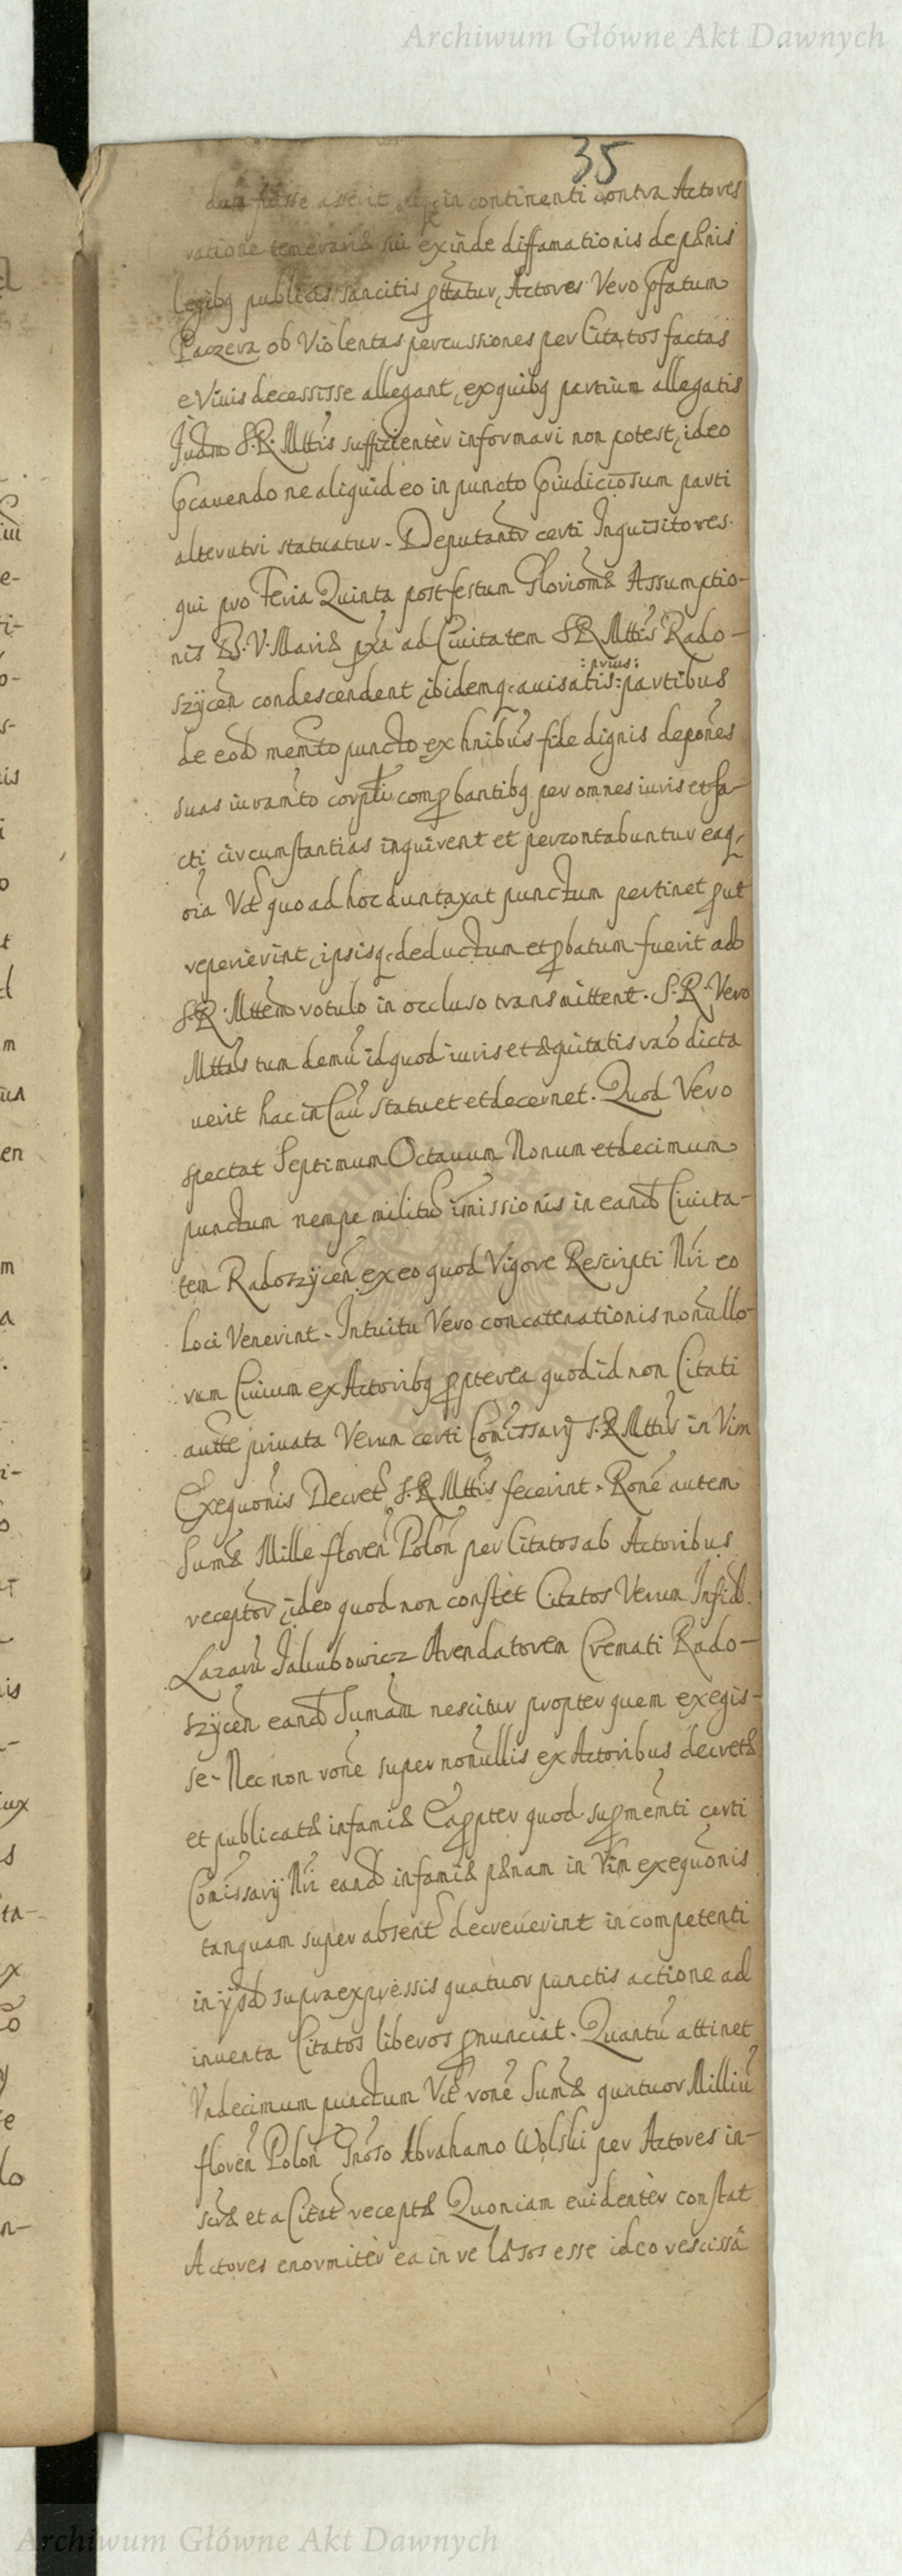 Archiwum Główne Akt Dawnych
35
fuisse asserit in continenti contra Actores
ratione temerariæ sui exinde diffamationis de pœnis
legibq publicis sancitis ꝓttatur, Actores Vero ꝓfatum
Paczera ob Violentas percussiones per Citatos factas
e Viuis decessisse allegant, ex quibq partium allegatis
Judm S.R.Mttis sufficienter informari non potest, ideo
ꝓcauendo ne aliquid eo in puncto ꝓiudiciosum parti
alterutri statuatur. Deputantr certi Inquisitores
qui pro Feria Quinta post festum Gloriomæ Assumptio-
nis B.V.Mariæ pxa ad Ciuitatem S.R.Mttis Rado-
szycen condescendent, ibidemq auisatis :prius: partibus
de eod memto puncto ex hnibus fide dignis depones
suas iuramto corpli comꝓbantibq per omnes iuris et fa-
cti circumstantias inquirent et percontabuntur eaq
oia Vt quo ad hoc duntaxat punctum pertinet ꝓut
reperierint, ipsisq deductum et ꝓbatum fuerit ad
S.R.Mttem rotulo in occluso transmittent. S.R. Vero
Mttas tum demu id quod iuris et æquitatis rao dicta
uerit hac in Cau statuet et decernet. Quod Vero
spectat Septimum Octauum Nonum et decimum
punctum nempe militu imissionis in eand Ciuita-
tem Radoszycen ex eo quod Vigore Rescripti Nri eo
loci Venerint. Intuitu Vero concatenationis nonullo-
rum Ciuium ex Actoribq ꝓpterea quod id non Citati
autte priuata Verum certi Comissarij S.R.Mttis in Vim
Exequonis Decret S.R.Mttis fecerint. Rone autem
Sumæ Mille floren Polon per Citatos ab Actoribus
receptar, ideo quod non constet Citatos Verum Infid.
Lazaru Jakubowicz Arendatorem Cremati Rado-
szycen eand Sumam nescitur propter quem exegis-
se. Nec non rone super nonullis ex Actoribus decretæ
et publicatæ infamiæ Eaꝓpter quod supmemti certi
Comissarij Nri eand infamiæ pœnam in Vim exequonis
tanquam super absent decreuerint incompetenti
in ijsd supraexpressis quatuor punctis actione ad
inuenta Citatos liberos ꝓnunciat. Quantu attinet
Vndecimum punctum Vt rone Sumæ quatuor Milliu
floren Polon Gnoso Abrahamo Wolski per Actores in-
scræ et a Citat receptæ Quoniam euidenter constat
Actores enormiter ea in re læsos esse ideo rescissa
Archiwum Główne Akt Dawnych